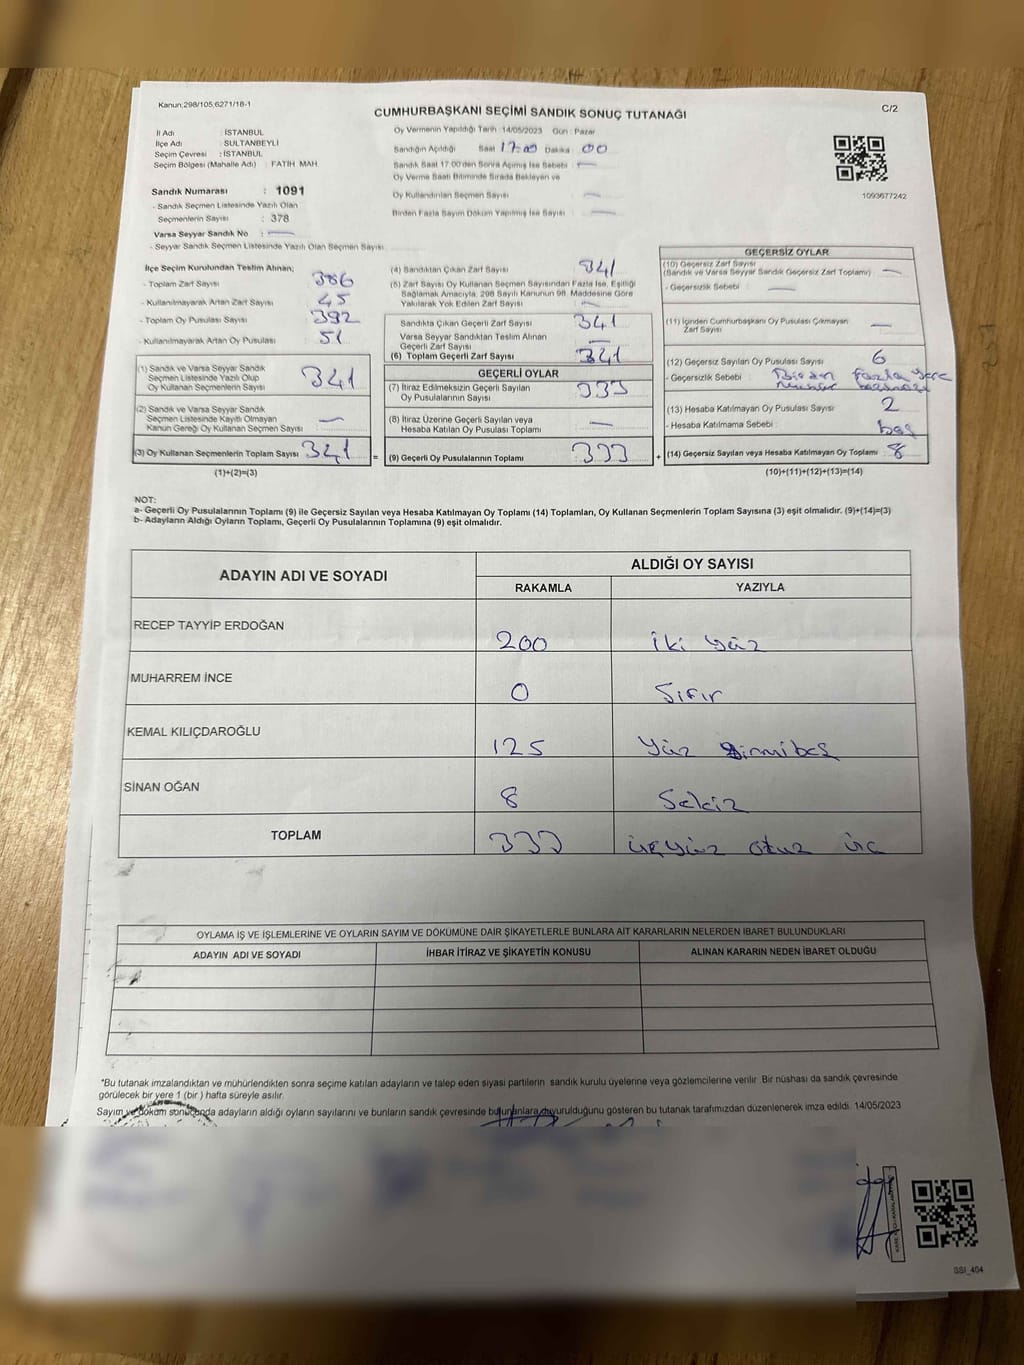 Kanun;298/105,6271/18-1
CUMHURBAŞKANI SEÇİMİ SANDIK SONUÇ TUTANAĞI
C/2
İl Adı : İSTANBUL
İlçe Adı : SULTANBEYLİ
Seçim Çevresi : İSTANBUL
Seçim Bölgesi (Mahalle Adı) : FATİH MAH.
Oy Vermenin Yapıldığı Tarih : 14/05/2023 Gün : Pazar
Sandığın Açıldığı Saat 17:00 Dakika : 00
Sandık Saat 17:00'den Sonra Açılmış İse Sebebi : —
Oy Verme Saati Bitiminde Sırada Bekleyen ve
Oy Kullandırılan Seçmen Sayısı : —
Birden Fazla Sayım Döküm Yapılmış İse Sayısı : —
1093677242
Sandık Numarası : 1091
- Sandık Seçmen Listesinde Yazılı Olan
Seçmenlerin Sayısı : 378
Varsa Seyyar Sandık No : —
- Seyyar Sandık Seçmen Listesinde Yazılı Olan Seçmen Sayısı
İlçe Seçim Kurulundan Teslim Alınan;
- Toplam Zarf Sayısı : 386
- Kullanılmayarak Artan Zarf Sayısı : 45
- Toplam Oy Pusulası Sayısı : 392
- Kullanılmayarak Artan Oy Pusulası : 51
(1) Sandık ve Varsa Seyyar Sandık
Seçmen Listesinde Yazılı Olup
Oy Kullanan Seçmenlerin Sayısı : 341
(2) Sandık ve Varsa Seyyar Sandık
Seçmen Listesinde Kayıtlı Olmayan
Kanun Gereği Oy Kullanan Seçmen Sayısı : —
(3) Oy Kullanan Seçmenlerin Toplam Sayısı : 341
(1)+(2)=(3)
(4) Sandıktan Çıkan Zarf Sayısı : 341
(5) Zarf Sayısı Oy Kullanan Seçmen Sayısından Fazla İse, Eşitliği
Sağlamak Amacıyla, 298 Sayılı Kanunun 98. Maddesine Göre
Yakılarak Yok Edilen Zarf Sayısı : —
Sandıkta Çıkan Geçerli Zarf Sayısı : 341
Varsa Seyyar Sandıktan Teslim Alınan
Geçerli Zarf Sayısı : —
(6) Toplam Geçerli Zarf Sayısı : 341
GEÇERLİ OYLAR
(7) İtiraz Edilmeksizin Geçerli Sayılan
Oy Pusulalarının Sayısı : 333
(8) İtiraz Üzerine Geçerli Sayılan veya
Hesaba Katılan Oy Pusulası Toplamı : —
= (9) Geçerli Oy Pusulalarının Toplamı : 333
GEÇERSİZ OYLAR
(10) Geçersiz Zarf Sayısı : —
(Sandık ve Varsa Seyyar Sandık Geçersiz Zarf Toplamı)
- Geçersizlik Sebebi : —
(11) İçinden Cumhurbaşkanı Oy Pusulası Çıkmayan
Zarf Sayısı : —
(12) Geçersiz Sayılan Oy Pusulası Sayısı : 6
- Geçersizlik Sebebi : Birden fazla yere
(13) Hesaba Katılmayan Oy Pusulası Sayısı : 2
- Hesaba Katılmama Sebebi : boş
+ (14) Geçersiz Sayılan veya Hesaba Katılmayan Oy Toplamı : 8
(10)+(11)+(12)+(13)=(14)
NOT:
a- Geçerli Oy Pusulalarının Toplamı (9) ile Geçersiz Sayılan veya Hesaba Katılmayan Oy Toplamı (14) Toplamları, Oy Kullanan Seçmenlerin Toplam Sayısına (3) eşit olmalıdır. (9)+(14)=(3)
b- Adayların Aldığı Oyların Toplamı, Geçerli Oy Pusulalarının Toplamına (9) eşit olmalıdır.
ADAYIN ADI VE SOYADI
ALDIĞI OY SAYISI
RAKAMLA YAZIYLA
RECEP TAYYİP ERDOĞAN 200 iki yüz
MUHARREM İNCE 0 Sıfır
KEMAL KILIÇDAROĞLU 125 Yüz yirmibeş
SİNAN OĞAN 8 Sekiz
TOPLAM 333 üçyüz otuz üç
OYLAMA İŞ VE İŞLEMLERİNE VE OYLARIN SAYIM VE DÖKÜMÜNE DAİR ŞİKAYETLERLE BUNLARA AİT KARARLARIN NELERDEN İBARET BULUNDUKLARI
ADAYIN ADI VE SOYADI İHBAR İTİRAZ VE ŞİKAYETİN KONUSU ALINAN KARARIN NEDEN İBARET OLDUĞU
*Bu tutanak imzalandıktan ve mühürlendikten sonra seçime katılan adayların ve talep eden siyasi partilerin sandık kurulu üyelerine veya gözlemcilerine verilir. Bir nüshası da sandık çevresinde
görülecek bir yere 1 (bir ) hafta süreyle asılır.
Sayım ve döküm sonucunda adayların aldığı oyların sayılarını ve bunların sandık çevresinde bulunanlara duyurulduğunu gösteren bu tutanak tarafımızdan düzenlenerek imza edildi. 14/05/2023
SSI_404